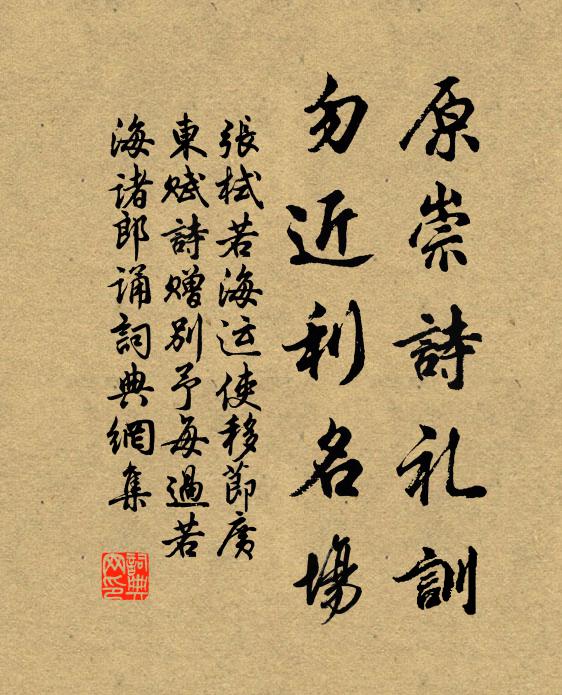 原崇詩礼訓
勿近利名場
張栻若海运使移節廣
東赋詩赠别予每過若
海诸郎诵詞典網集
詞典网印